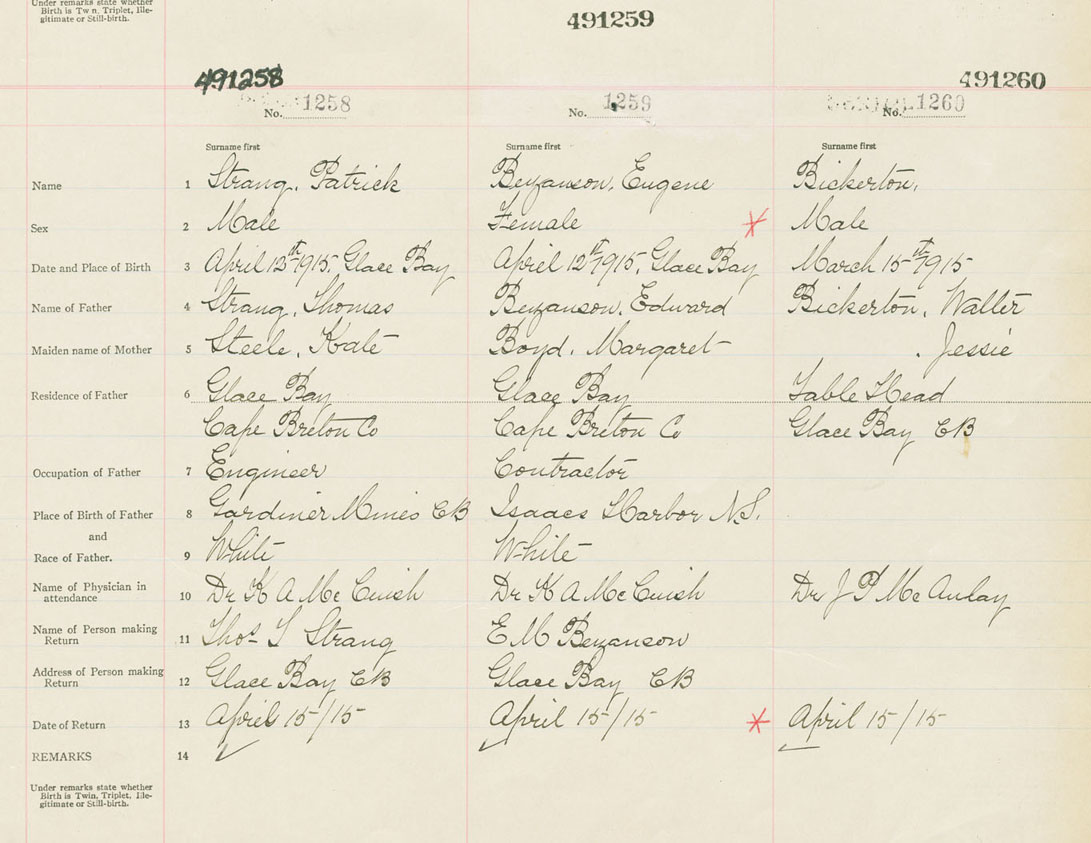 Under remarks state whether
Birth is Twin, Triplet, Ille-
gitimate or Still-birth.
491259
491258
491260
No. 1258
No. 1259
No. 1260
Surname first
Surname first
Surname first
Name 1 Strang, Patrick Bezanson, Eugene Bickerton,
Sex 2 Male Female Male
Date and Place of Birth 3 April 12th 1915, Glace Bay April 12th 1915, Glace Bay March 15th 1915
Name of Father 4 Strang, Thomas Bezanson, Edward Bickerton, Walter
Maiden name of Mother 5 Steele, Kate Boyd, Margaret , Jessie
Residence of Father 6 Glace Bay Glace Bay Table Head
Cape Breton Co Cape Breton Co Glace Bay CB
Occupation of Father 7 Engineer Contractor
Place of Birth of Father 8 Gardiner Mines CB Isaacs Harbor N.S.
and
Race of Father. 9 White White
Name of Physician in
attendance 10 Dr K A McCuish Dr K A McCuish Dr J P McAulay
Name of Person making
Return 11 Thos S Strang E M Bezanson
Address of Person making
Return 12 Glace Bay CB Glace Bay CB
Date of Return 13 April 15/15 April 15/15 April 15/15
REMARKS 14
Under remarks state whether
Birth is Twin, Triplet, Ille-
gitimate or Still-birth.